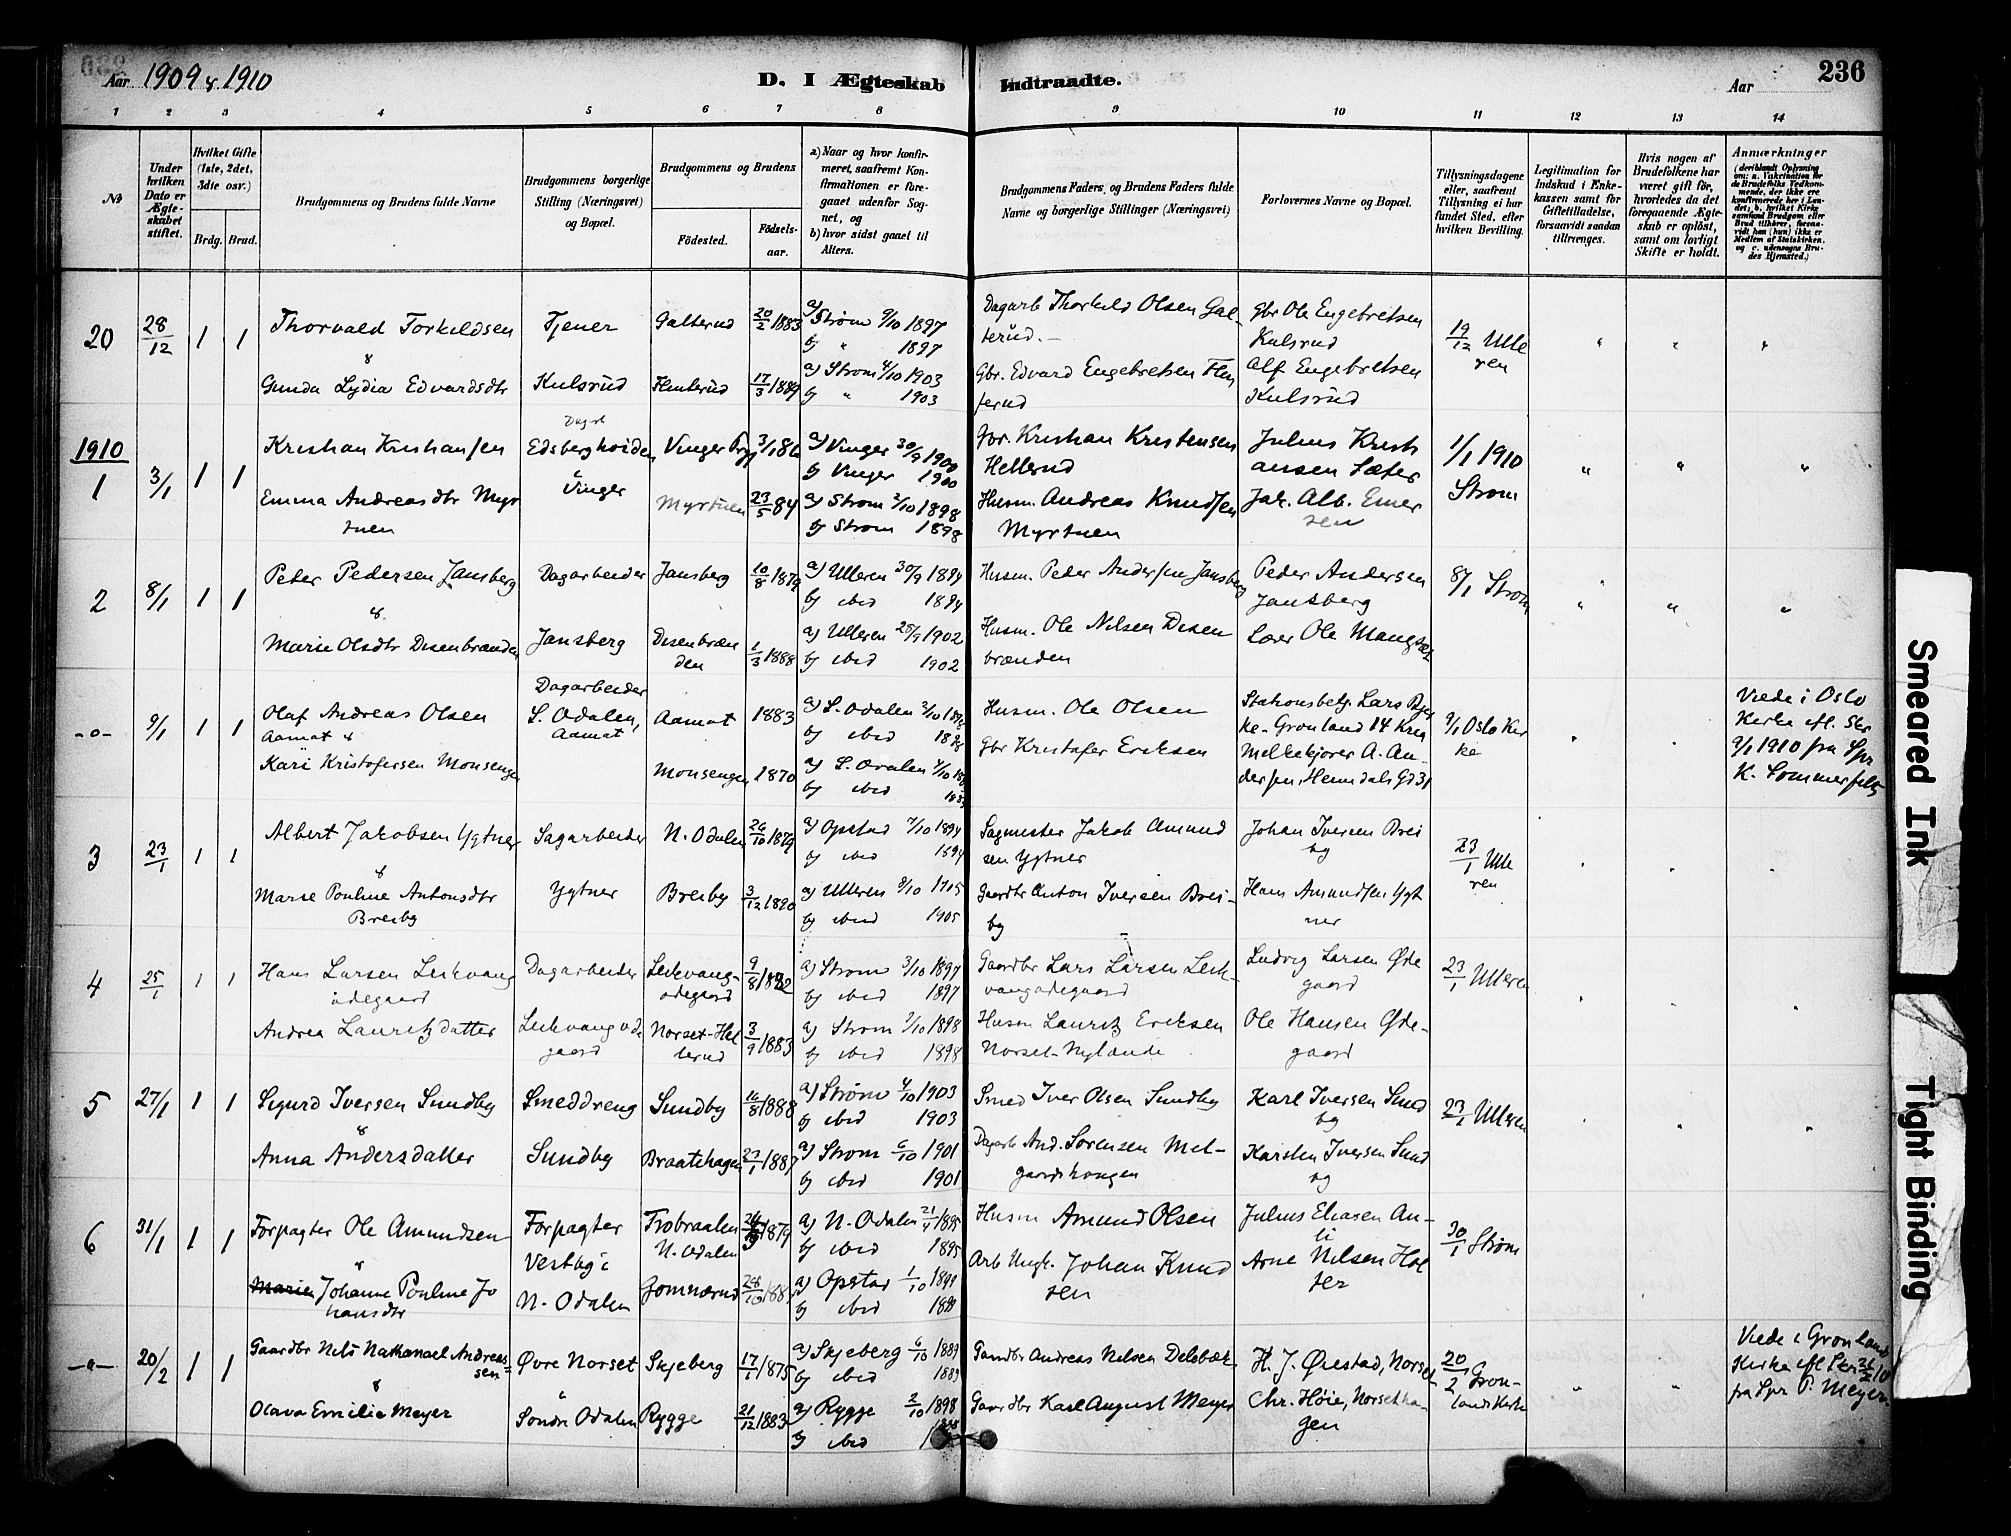 Aar 1909 & 1910
D. I Ægteskab
Indtraadte.
Aar
236
1 2 3 4 5 6 7 8 9 10 11 12 13 14
No
Under hvilken Dato er Ægteskabet stiftet.
Hvilket Gifte (1ste, 2det, 3die osv.)
Brdg. Brud.
Brudgommens og Brudens fulde Navne
Brudgommens borgerlige Stilling (Næringsvei) og Bopæl.
Brudgommens og Brudens
Fødested.
Fødselsaar.
a) Naar og hvor konfirmeret, saafremt Konfirmationen er foregaaet udenfor Sognet, og
b) hvor sidst gaaet til Alters.
Brudgommens Faders og Brudens Faders fulde Navne og borgerlige Stillinger (Næringsvei)
Forlovernes Navne og Bopæl.
Tillysningsdagene eller, saafremt Tillysning ei har fundet Sted, efter hvilken Bevilling.
Legitimation for Indskud i Enkekassen samt for Giftetilladelse, forsaavidt saadan tiltrænges.
Hvis nogen af Brudefolkene har været gift før, hvorledes da det foregaaende Ægteskab er opløst, samt om lovligt Skifte er holdt.
Anmærkninger
20 28/12 1 1 Thorvald Torkildsen Tjener Galterud 20/2 1883 a) Strøm 9/10 1897 b) " 1897
Dagarb Thorkild Olsen Galterud.
Gbr Ole Engebretsen Kulsrud
19/12 Ulleren
& Gunda Lydia Edvardsdtr Kulsrud 17/3 1889 a) Strøm 4/10 1903 b) " 1903
Gbr. Edvard Engebretsen
Alf Engebretsen Kulsrud
1910
1 3/1 1 1 Kristian Kristiansen Vinger 3/1 86 a) Vinger 30/9 1900 b) Vinger 1900
Gbr. Kristian Kristensen Hellerud
1/1 1910 Strøm
Emma Andreasdtr Myrtuen Vinger Myrtuen 23/5 84 a) Strøm 2/10 1898 b) Strøm 1898
Husm. Andreas Knudsen Myrtuen
Jak. Alb. Emersen
2 8/1 1 1 Peter Pedersen Jansberg Dagarbeider Jansberg 10/8 1879 a) Ulleren 30/9 1894 b) ibid 1894
Husm. Peder Andersen Jansberg
Peder Andersen Jansberg
8/1 Strøm
& Marie Olsdtr Disenbranden Jansberg Disenbrænden 1/3 1888 a) Ulleren 28/9 1902 b) ibid 1902
Husm. Ole Nilsen Disenbrænden
-o- 9/1 1 1 Olaf Andreas Olsen Aamot & Dagarbeider S. Odalen, Aamot Aamot 1883 a) S. Odalen b) ibid
Husm. Ole Olsen
9/1 Oslo Kirke
Viede i Oslo Kirke efl. Skr 9/1 1910 fra Spr K. Sommerfelt
Kari Kristofersen Monsengen Monsengen 1870 a) S. Odalen b) ibid
Gbr Kristofer Eriksen
3 23/1 1 1 Albert Jakobsen Ygtner Sagarbeider N. Odalen 26/10 1879 a) Opstad 7/10 1894 b) ibid 1894
Sagmester Jakob Amundsen Ygtner
Johan Iversen Breiby
23/1 Ulleren
& Marie Pouline Antonsdtr Breiby Ygtner Breiby 3/12 1890 a) Ulleren 8/10 1905 b) ibid 1905
Gaardbr Anton Iversen Breiby
Hans Amundsen Ygtner
4 25/1 1 1 Hans Larsen Leikvangødegaard Dagarbeider Leikvangødegaard 9/8 1882 a) Strøm 3/10 1897 b) ibid 1897
Gaardbr Lars Larsen Leikvangødegaard
Ludvig Larsen Ødegaard
23/1 Ulleren
Andrea Lauritzdatter Leikvangødegaard 3/9 1883 a) Strøm 2/10 1898 b) ibid 1898
Husm Lauritz Eriksen Norset-Nylænde
Ole Hansen Ødegaard
5 27/1 1 1 Sigurd Iversen Sundby Smeddreng Sundby 16/8 1888 a) Strøm 4/10 1903 b) ibid 1903
Smed Iver Olsen Sundby
Karl Iversen Sundby
23/1 Ulleren
& Anna Andersdatter Sundby Braatehagen 23/1 1887 a) Strøm 6/10 1901 b) ibid 1901
Dagarb And. Sørensen Melgaardshougen
Karsten Iversen Sundby
6 31/1 1 1 Forpagter Ole Amundsen Forpagter Vestby i N. Odalen 1879 a) N. Odalen 21/4 1895 b) ibid 1895
Husm Amund Olsen
30/1 Strøm
& Johanne Pouline Johansdtr N. Odalen Gomnærud 28/10 a) Opstad 1/10 b) ibid
Johan Knudsen
Arne Nilsen Holter
-o- 20/2 1 1 Gaardbr Nils Nathanael Andreassen Øvre Norset Skjeberg 17/1 1875 a) Skjeberg 6/10 1889 b) ibid 1889
Gaardbr Andreas Nilsen Delebæk
H. J. Ørestad, Norset
20/2 Grønlands Kirke
Viede i Grønlands Kirke efl Skr fra Spr P. Meyer
& Olava Emilie Meyer Søndre Odalen Rygge 21/12 1883 a) Rygge 2/10 1898 b) ibid
Gaardbr Karl August Meyer
Chr. Høie, Norsethagen
Smeared Ink
Tight Binding